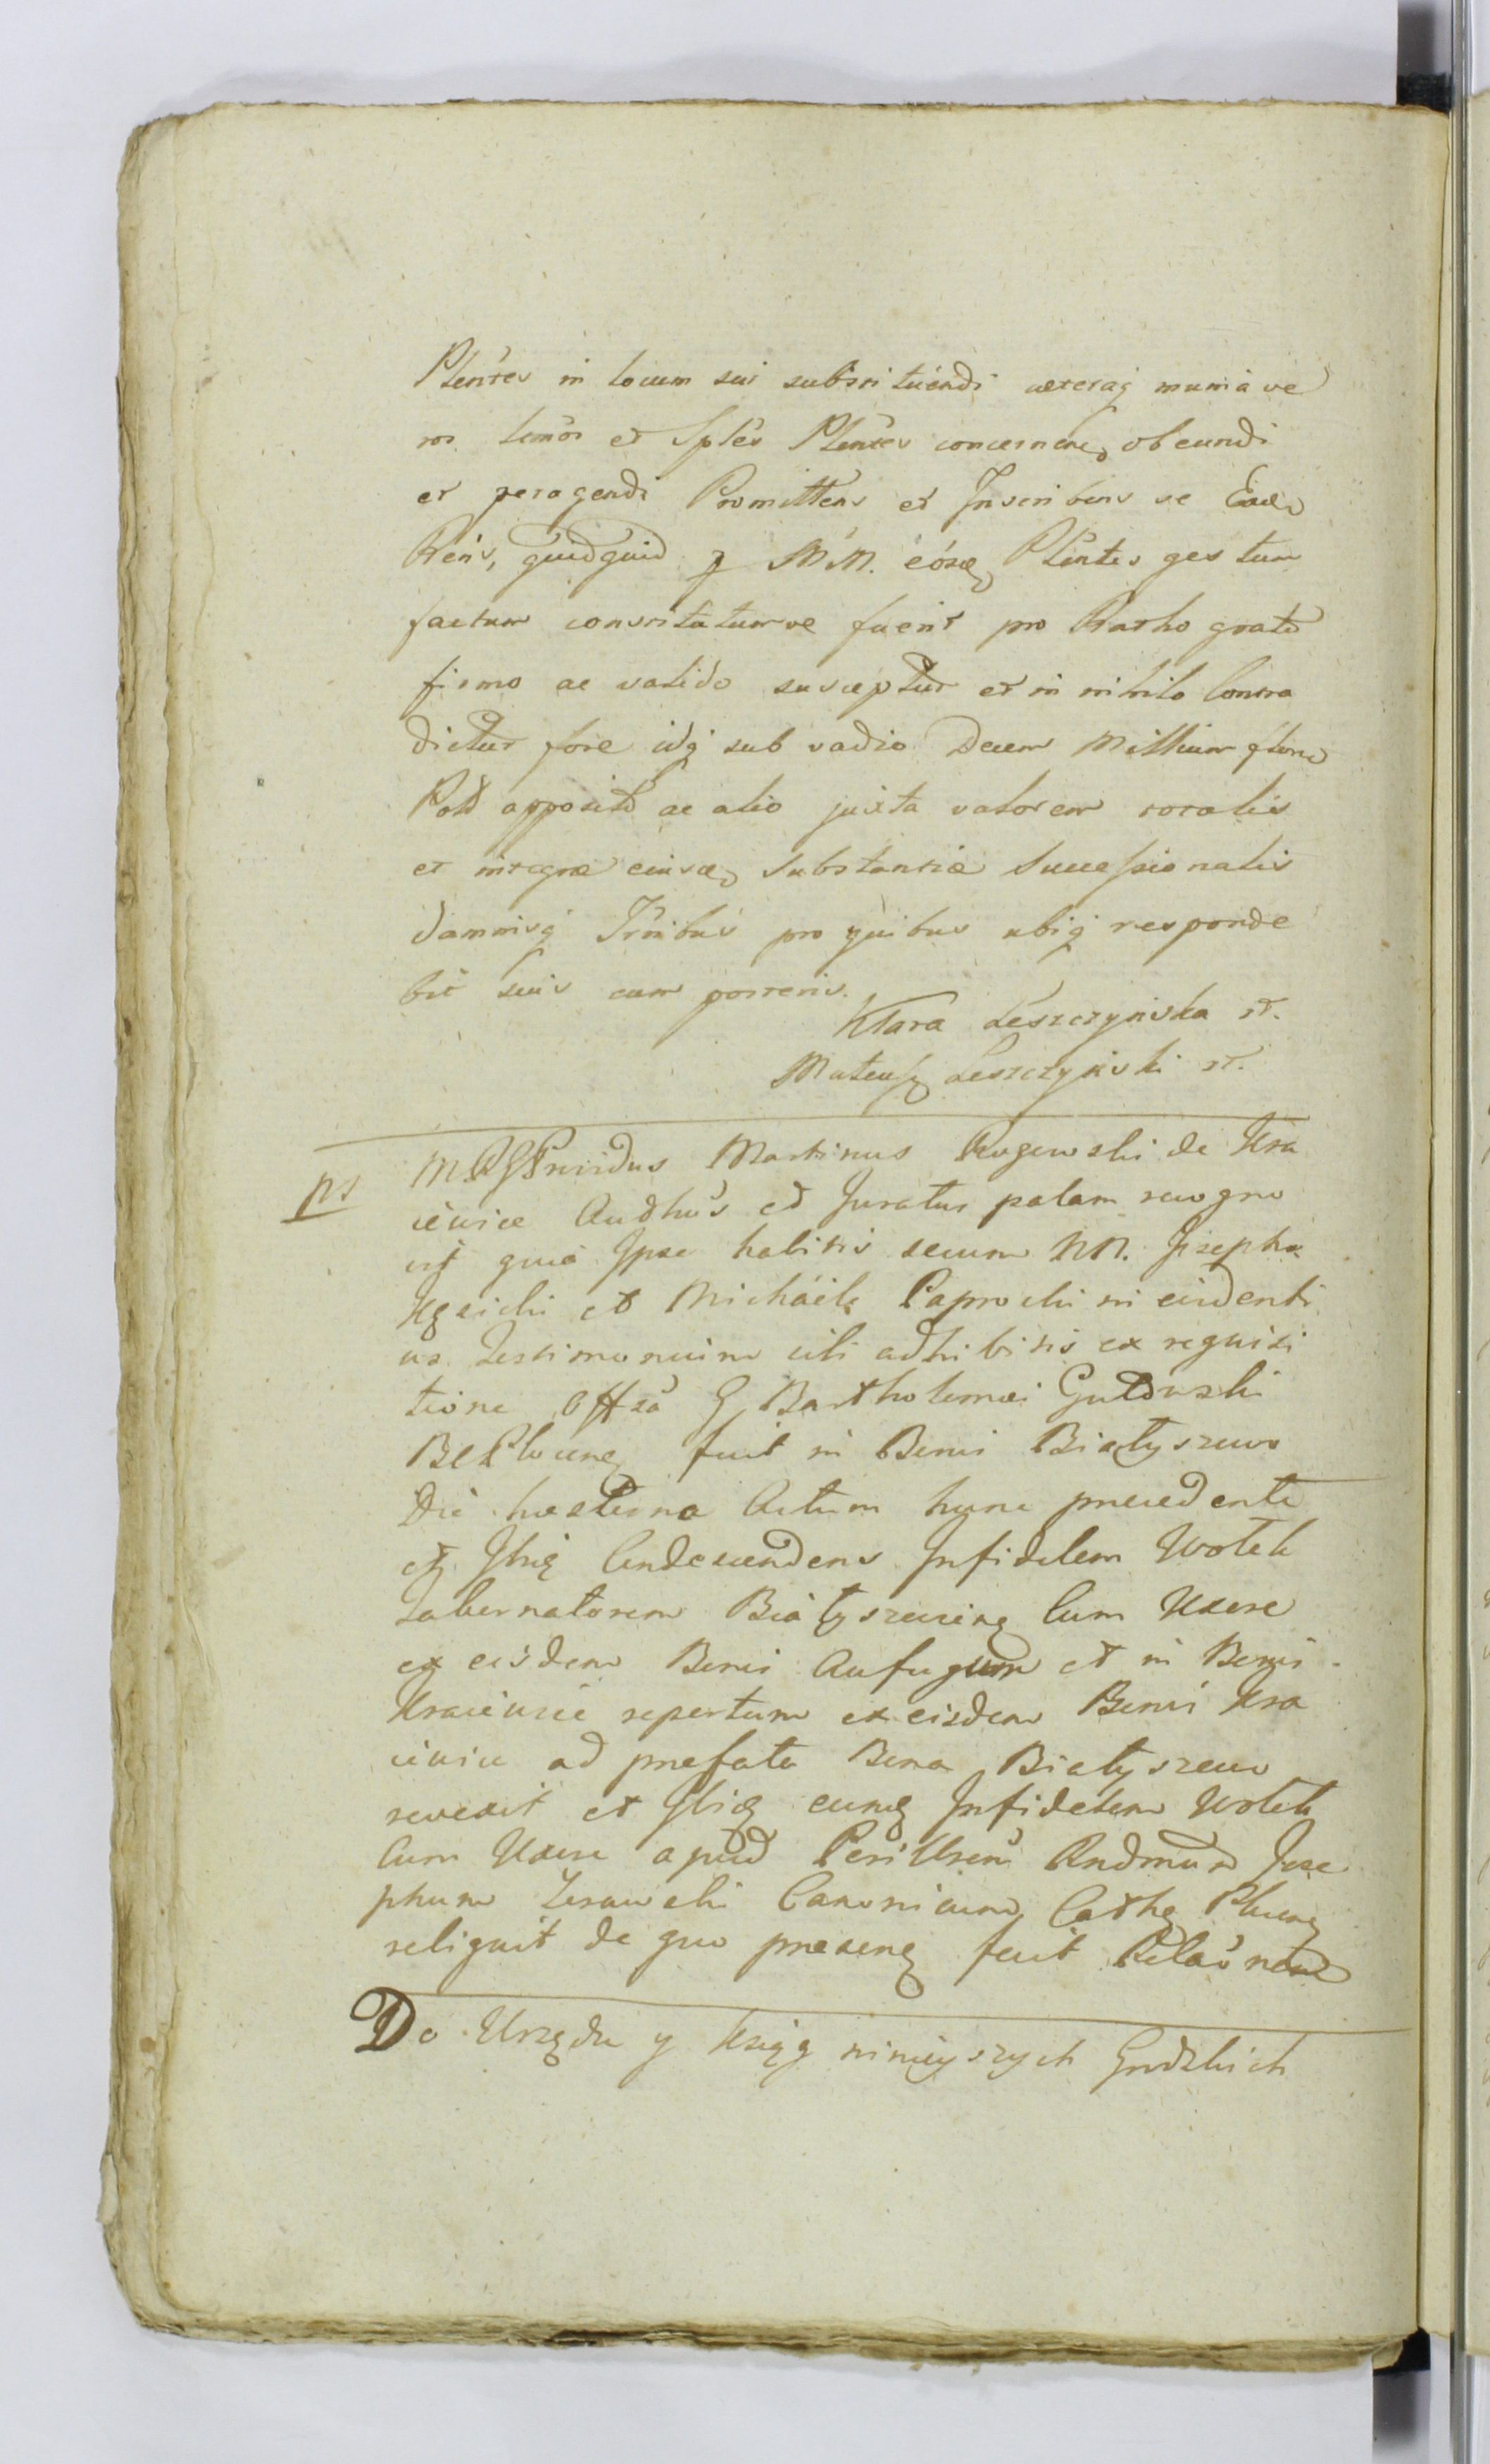 Plentes in locum sui substituendi caeteraq munia ve
ros lemôs et Sples Plentes concernenᷓ obeundi
et peragendi Promittens et Inscribens se Ead
Rens, quidquid p MM. eosdᷓ Plentes gestum
factum constitutumve fuerit pro Ratho grato
firmo ac valido susceptur et in nihilo Contra
dictur fore idq sub vadio Decem Millium florᷓ
Pol apposito ac alio juxta valorem totalis
et integrae eiusdᷓ Substantiae Successionalis
damnisq Trnibus pro quibus ubiq responde
bit suis cum posteris.
Klara Leszczynska
Mateusz Leszczynski
ps
Providus Martinus Rogewski de Kra
iewice Authus et Juratus palam recogno
vit quia Ipse habitis secum NN. Josepho
et Michaele Paprocki in evidenti
us Testimonium sibi adhibitis ex requisi
tione Offsa G Bartholomaei Gutowski
Plocenᷓ fuit in Bonis Białyszewo
die hesterna Actum hunc praecedente
et Ibiq Condescendens Infidelem Wolek
Tabernatorem Białyszewienᷓ Cum Uxore
ex eisdem Bonis Aufugum et in Bonis
Kraiewice repertum ex eisdem Bonis Kra
iewice ad praefata Bona Białyszewo
revexit et Ibiq eumq Infidelem Wolek
Cum Uxore apud Perillrem Rndmum Jose
phum Canonicum Cathᷓ Plocenᷓ
reliquit de quo praesenᷓ fecit Relaonem
Do Urzędu y Ksiąg ninieyszych Grodzkich